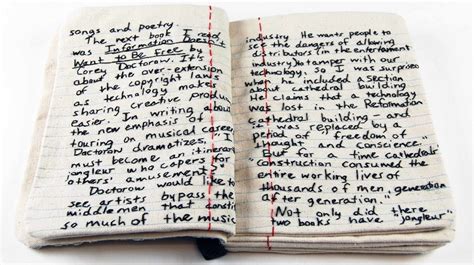 songs and poetry.
The next book I read
was Information Doesn't
Want to Be Free by
Corey Doctorow. It's
about the over-extension
of the copyright laws
as technology makes
sharing creative produ
easier. In writing about
the new emphasis of
touring on musical careers
Doctorow dramatizes "
must become an itinerant
jongleur who capers for
others' amusement."
Doctorow would like to
see artists bypass the
middlemen that constit
so much of the music
industry. He wants people to
see the dangers of allowing
distributors (in the entertainment
industry) to tamper with our
technology. So I was surprised
when he included a section
about cathedral building.
He claims that a technology
was lost in the Reformation
"cathedral building - and
was replaced by a
period of "freedom of
thought and conscience."
But for a time cathedral
"construction consumed the
entire working lives of
thousands of men, generation
after generation."
Not only did these
two books have "jongleur"